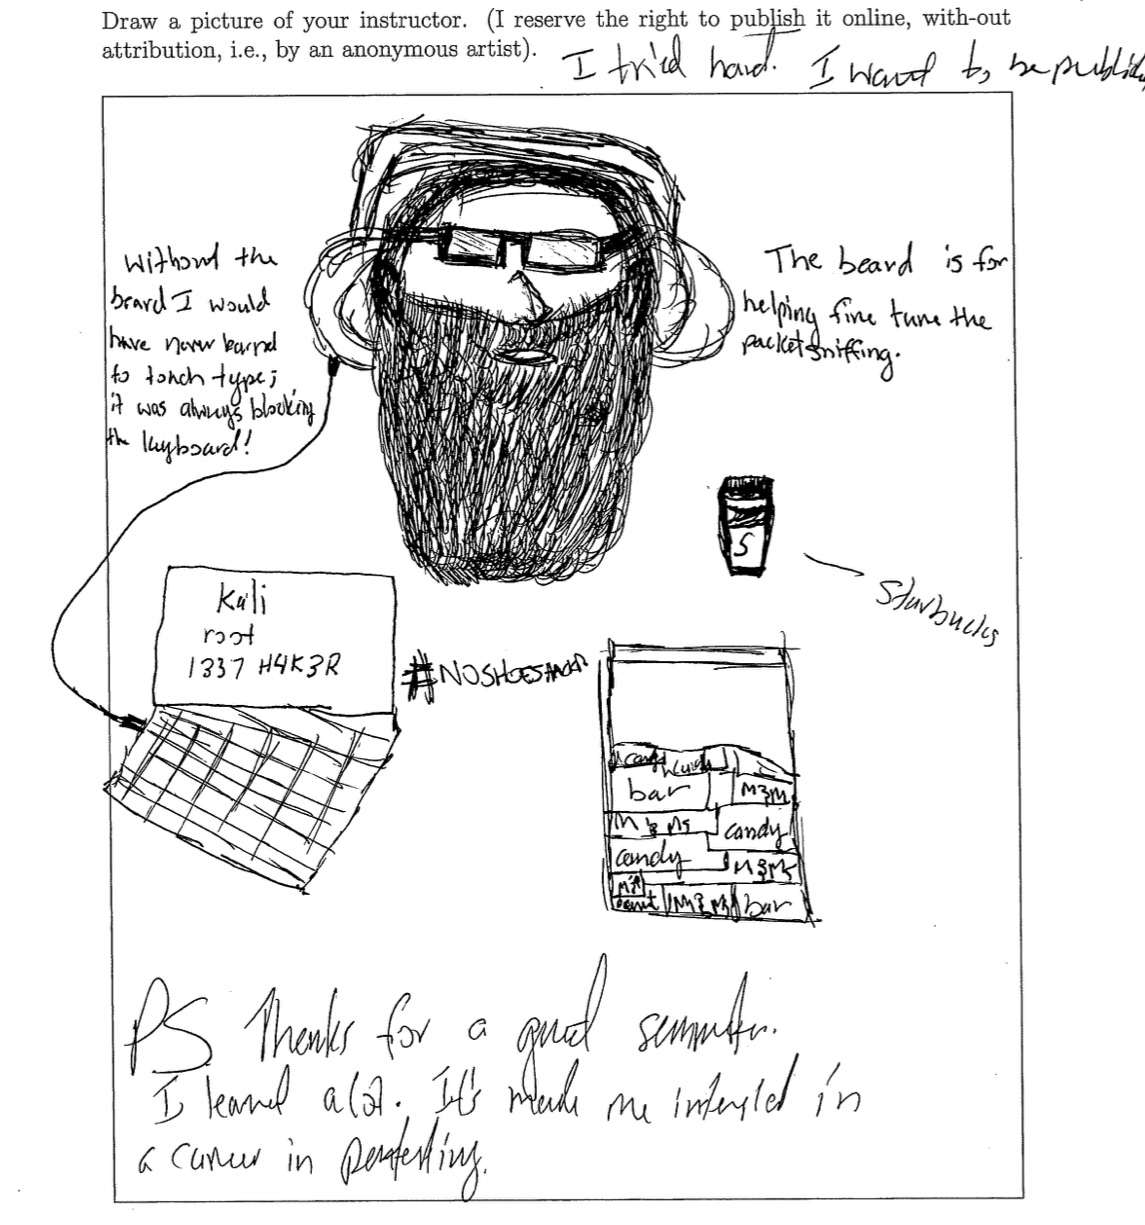 Draw a picture of your instructor. (I reserve the right to publish it online, with-out
attribution, i.e., by an anonymous artist).
I tried hard. I want to be
without the
beard I would
have never learned
to touch type;
it was always blocking
the keyboard!
The beard is for
helping fine tune the
packet sniffing.
S
Starbucks
Kali
root
1337 H4K3R
#NOSHOES
candy
bar M&M
M&Ms candy
candy M&Ms
M&M bar
PS Thanks for a good semester.
I learned a lot. It's made me interested in
a career in pentesting.